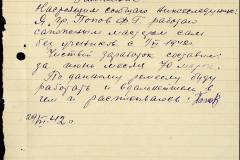 Настоящим сообщаю нижеследующее:
Я, гр. Попов Ф.Г. работаю
сапожным мастером сам
без учеников с 1/VI 1942г.
Чистый заработок составил
за июнь месяц 70 марок.
По данному ремеслу буду
работать и в дальнейшем в
чем и расписываюсь: Попов